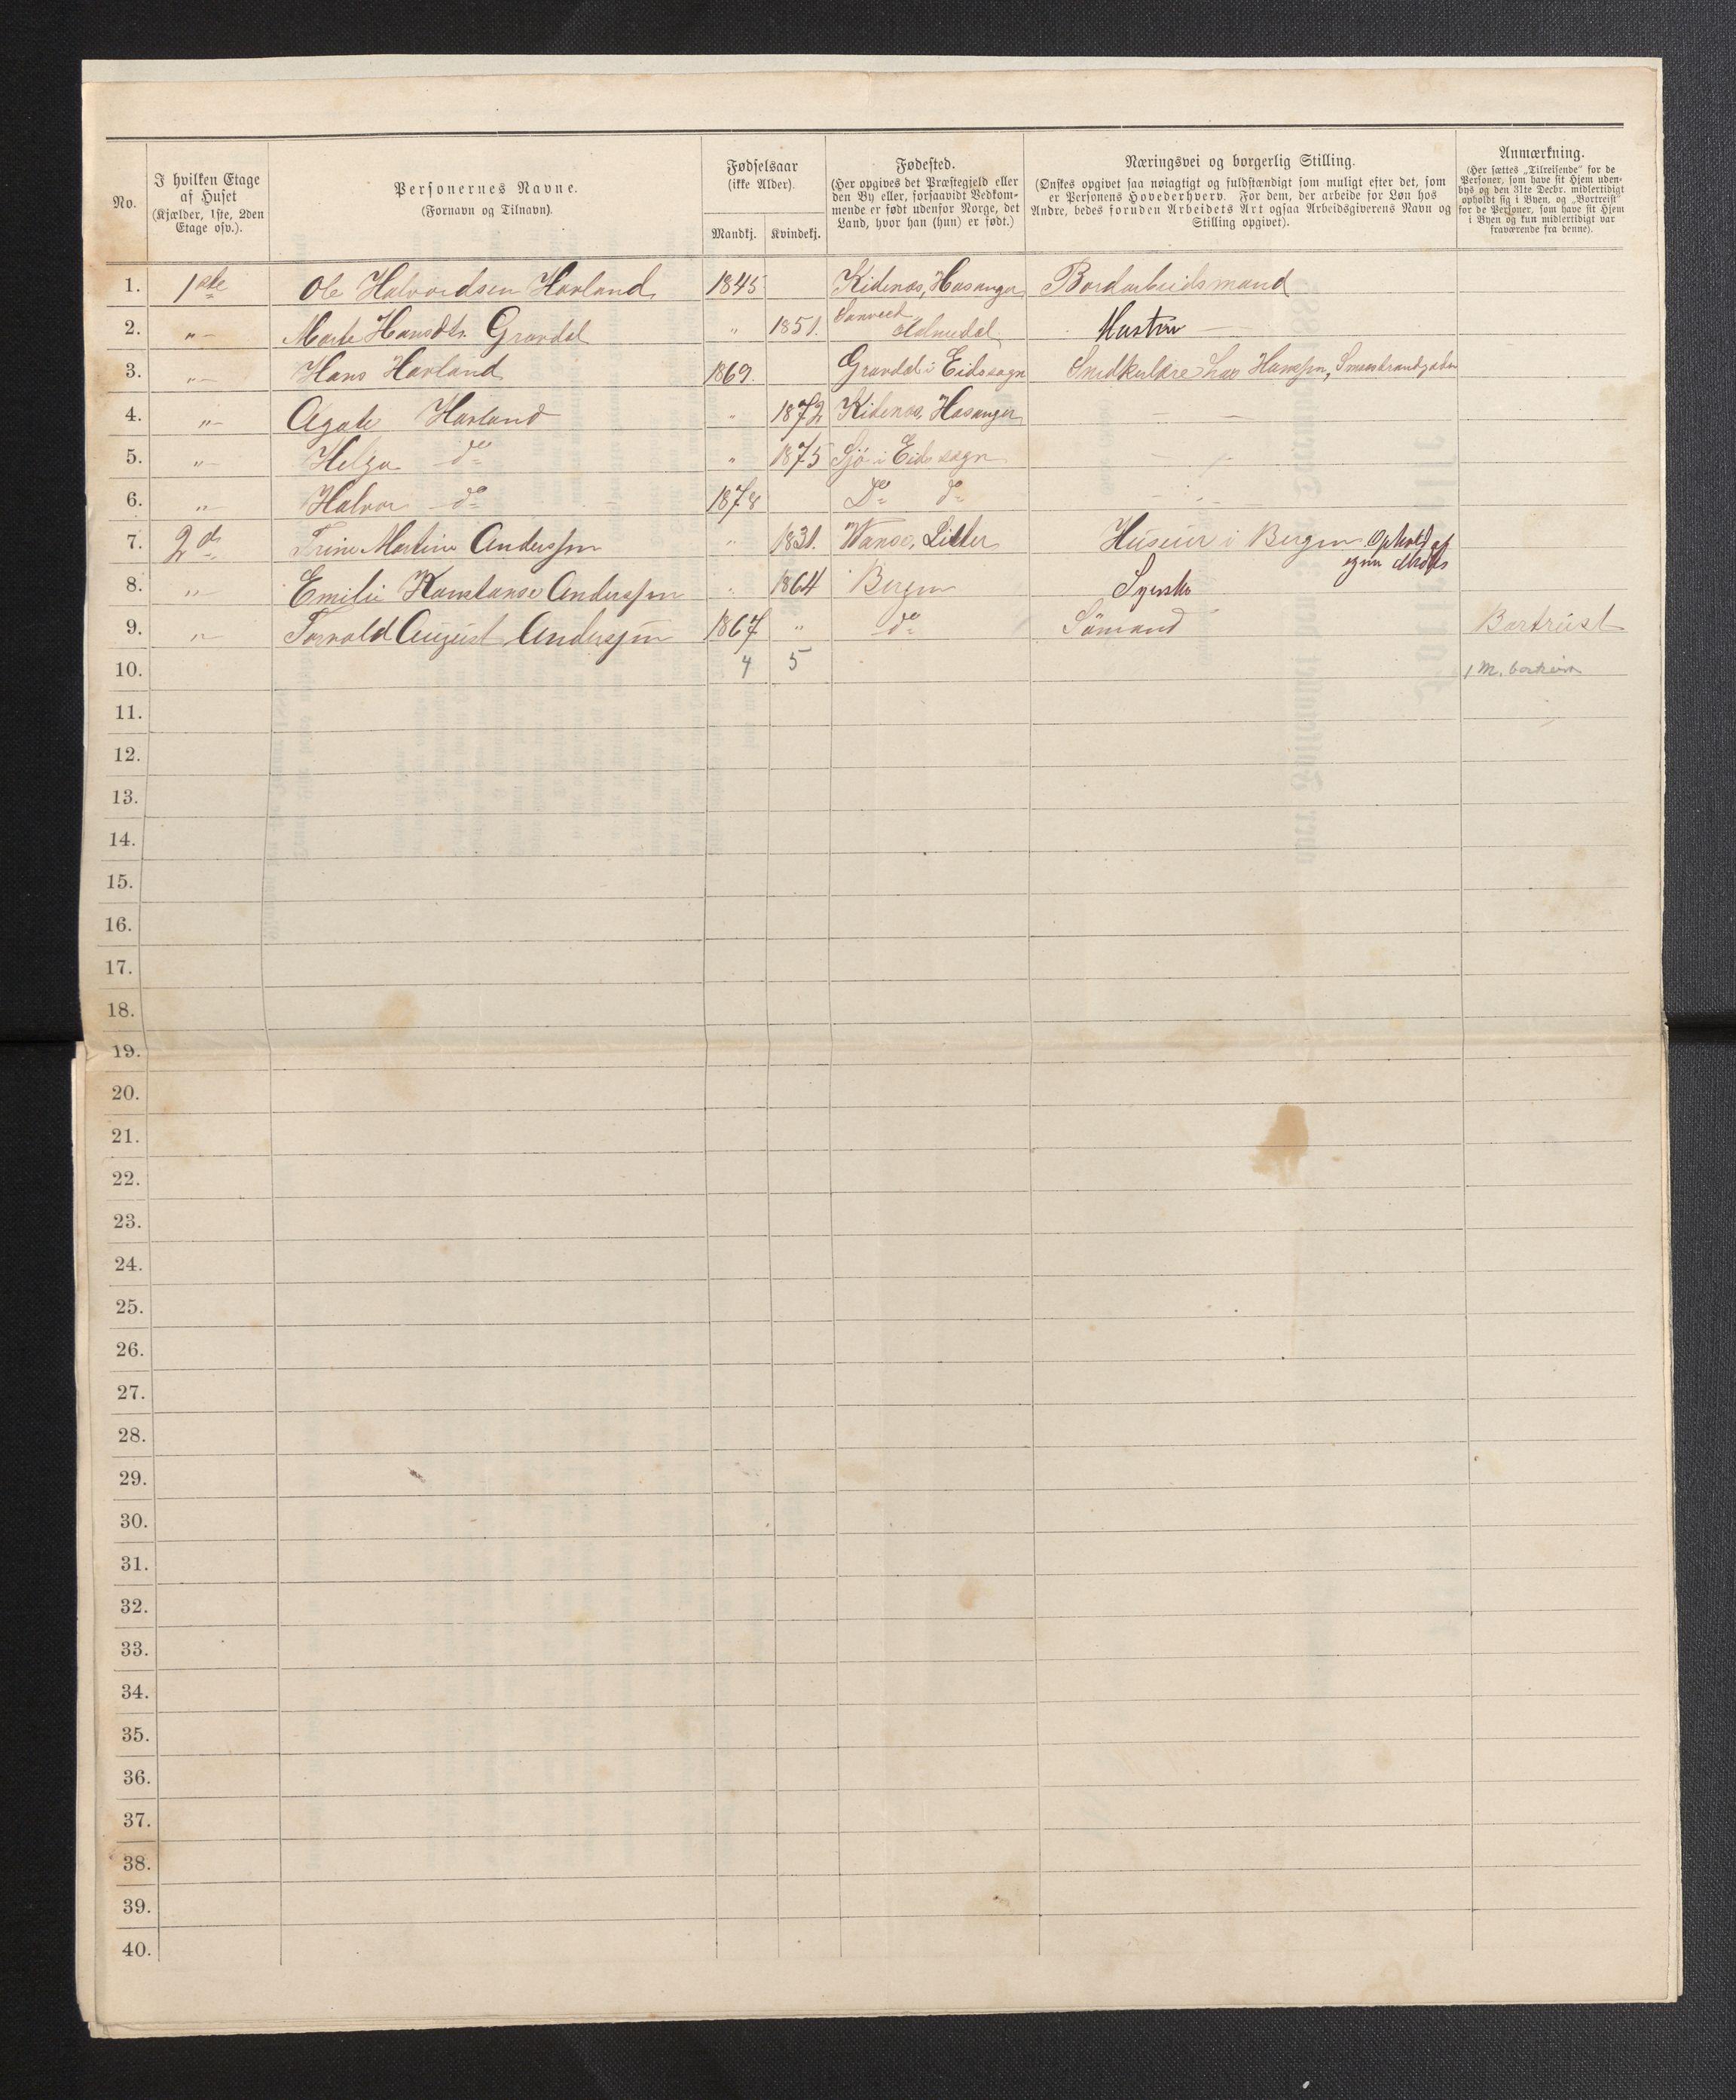 No.
I hvilken Etage
af Huset
(Kjælder, 1ste, 2den
Etage osv.).
Personernes Navne.
(Fornavn og Tilnavn).
Fødselsaar
(ikke Alder).
Mandkj. Kvindekj.
Fødested.
(Her opgives det Præstegjeld eller
den By eller, forsaavidt Vedkom-
mende er født udenfor Norge, det
Land, hvor han (hun) er født.)
Næringsvei og borgerlig Stilling.
(Ønskes opgivet saa nøiagtigt og fuldstændigt som muligt efter det, som
er Personens Hovederhverv. For dem, der arbeide for Løn hos
Andre, bedes foruden Arbeidets Art ogsaa Arbeidsgiverens Navn og
Stilling opgivet).
Anmærkning.
(Her sættes „Tilreisende" for de
Personer, som have sit Hjem uden-
bys og den 31te Decbr. midlertidigt
opholdt sig i Byen, og „Bortreist"
for de Personer, som have sit Hjem
i Byen og kun midlertidigt var
fraværende fra denne).
1. 1ste Ole Halvordsen Havland 1845 Kidenæs, Hosanger Bordarbeidsmand
2. „ Marte Hansdtr. Gravdal „ 1851. Hustru
3. „ Hans Havland 1869. Gravdal i Eidssogn Hansen, Smaastrandgaden
4. „ Agate Havland „ 1872 Kidenæs, Hosanger
5. „ Helga do „ 1875 Sjö i Eidssogn
6. „ Halvor do 1878 Do do
7. 2d Trine Martine Anderssen „ 1831. Wanse, Lister Huseier i Bergen
8. „ Emilie Konstanse Anderssen „ 1864 Bergen Syerske
9. „ Torvald August Anderssen 1867 „ do Sömand Bortreist
10. 4 5 1 M. bortreist
11.
12.
13.
14.
15.
16.
17.
18.
19.
20.
21.
22.
23.
24.
25.
26.
27.
28.
29.
30.
31.
32.
33.
34.
35.
36.
37.
38.
39.
40.